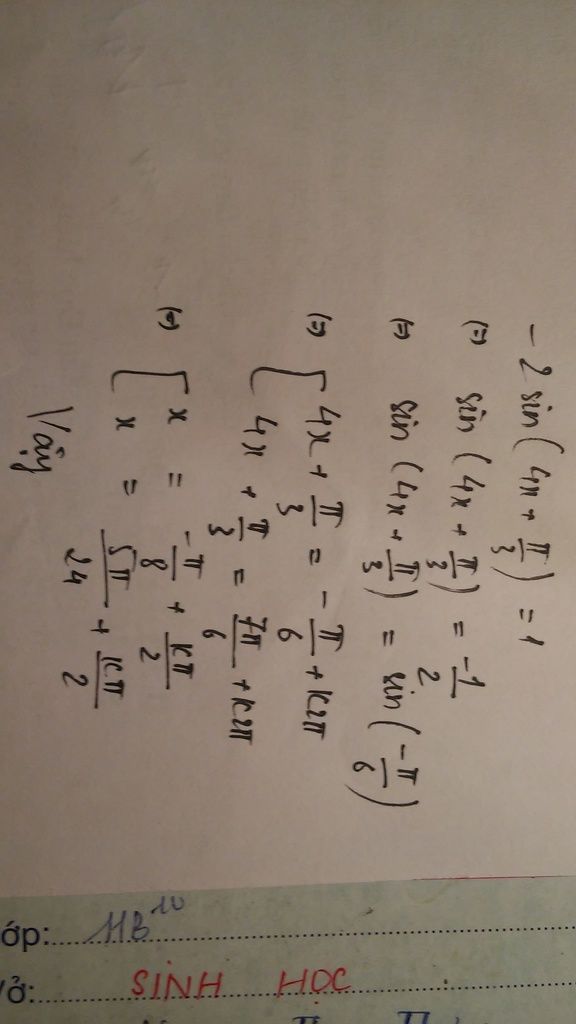 -2 sin(4x + π/3) = 1
(=) sin(4x + π/3) = -1/2
(=) sin(4x + π/3) = sin(-π/6)
(=) [ 4x + π/3 = -π/6 + k2π
4x + π/3 = 7π/6 + k2π
(=) [ x = -π/8 + kπ/2
x = 5π/24 + kπ/2
Vậy
ớp: 11B
ở: SINH HỌC